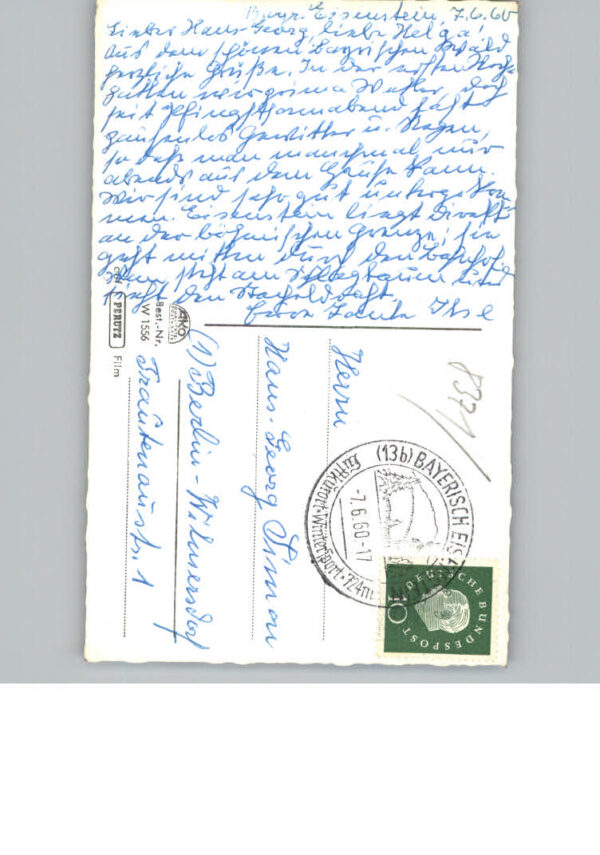 Bayr. Eisenstein, 7.6.60
Lieber Hans-Georg, liebe Helga!
Aus dem schönen Bayrischen Wald
herzliche Grüße. In der ersten Woche
hatten wir prima Wetter, doch
seit Pfingstsonnabend fast
pausenlos Gewitter u. Regen,
so daß man manchmal nur
abends aus dem Hause kann.
Wir sind sehr gut untergekom-
men. Eisenstein liegt direkt
an der böhmischen Grenze; sie
geht mitten durch den Bahnhof.
Man steht am Schlagbaum und
sieht den Stacheldraht.
Eure Tante Ilse
AMO
Best.-Nr.
W 1556
auf PERUTZ Film
Herrn
Hans-Georg Simon
(1) Berlin-Wilmersdorf
Trautenaustr. 1
8371
(13b) BAYERISCH EIS
Luftkurort · Wintersport · 724m
-7.6.60-17
DEUTSCHE BUNDESPOST
10